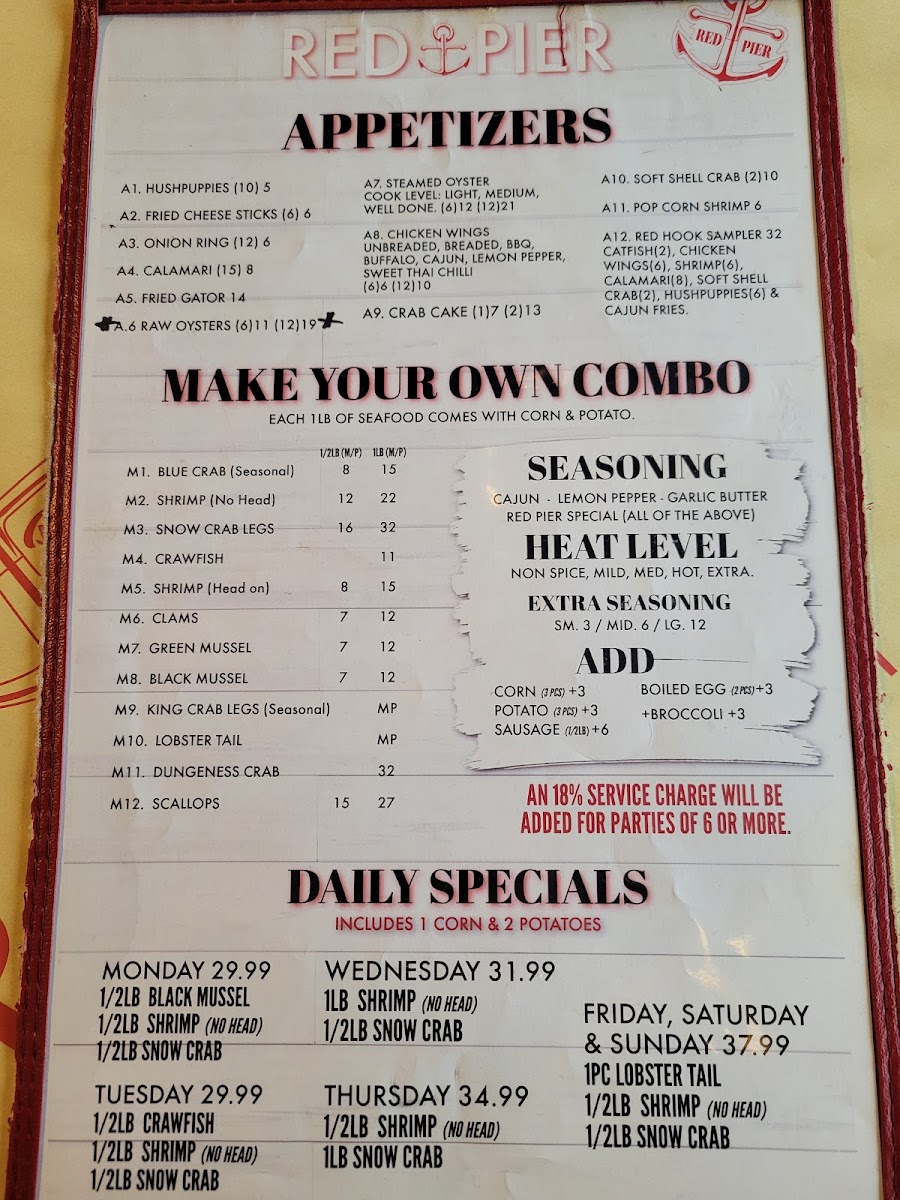 RED PIER
RED PIER
APPETIZERS
A1. HUSHPUPPIES (10) 5
A2. FRIED CHEESE STICKS (6) 6
A3. ONION RING (12) 6
A4. CALAMARI (15) 8
A5. FRIED GATOR 14
A.6 RAW OYSTERS (6)11 (12)19
A7. STEAMED OYSTER
COOK LEVEL: LIGHT, MEDIUM,
WELL DONE. (6)12 (12)21
A8. CHICKEN WINGS
UNBREADED, BREADED, BBQ,
BUFFALO, CAJUN, LEMON PEPPER,
SWEET THAI CHILLI
(6)6 (12)10
A9. CRAB CAKE (1)7 (2)13
A10. SOFT SHELL CRAB (2)10
A11. POP CORN SHRIMP 6
A12. RED HOOK SAMPLER 32
CATFISH(2), CHICKEN
WINGS(6), SHRIMP(6),
CALAMARI(8), SOFT SHELL
CRAB(2), HUSHPUPPIES(6) &
CAJUN FRIES.
MAKE YOUR OWN COMBO
EACH 1LB OF SEAFOOD COMES WITH CORN & POTATO.
1/2LB (M/P) 1LB (M/P)
M1. BLUE CRAB (Seasonal) 8 15
M2. SHRIMP (No Head) 12 22
M3. SNOW CRAB LEGS 16 32
M4. CRAWFISH 11
M5. SHRIMP (Head on) 8 15
M6. CLAMS 7 12
M7. GREEN MUSSEL 7 12
M8. BLACK MUSSEL 7 12
M9. KING CRAB LEGS (Seasonal) MP
M10. LOBSTER TAIL MP
M11. DUNGENESS CRAB 32
M12. SCALLOPS 15 27
SEASONING
CAJUN - LEMON PEPPER - GARLIC BUTTER
RED PIER SPECIAL (ALL OF THE ABOVE)
HEAT LEVEL
NON SPICE, MILD, MED, HOT, EXTRA.
EXTRA SEASONING
SM. 3 / MID. 6 / LG. 12
ADD
CORN (3 PCS) +3
POTATO (3 PCS) +3
SAUSAGE (1/2LB) +6
BOILED EGG (2 PCS)+3
+BROCCOLI +3
AN 18% SERVICE CHARGE WILL BE
ADDED FOR PARTIES OF 6 OR MORE.
DAILY SPECIALS
INCLUDES 1 CORN & 2 POTATOES
MONDAY 29.99
1/2LB BLACK MUSSEL
1/2LB SHRIMP (NO HEAD)
1/2LB SNOW CRAB
TUESDAY 29.99
1/2LB CRAWFISH
1/2LB SHRIMP (NO HEAD)
1/2LB SNOW CRAB
WEDNESDAY 31.99
1LB SHRIMP (NO HEAD)
1/2LB SNOW CRAB
THURSDAY 34.99
1/2LB SHRIMP (NO HEAD)
1LB SNOW CRAB
FRIDAY, SATURDAY
& SUNDAY 37.99
1PC LOBSTER TAIL
1/2LB SHRIMP (NO HEAD)
1/2LB SNOW CRAB